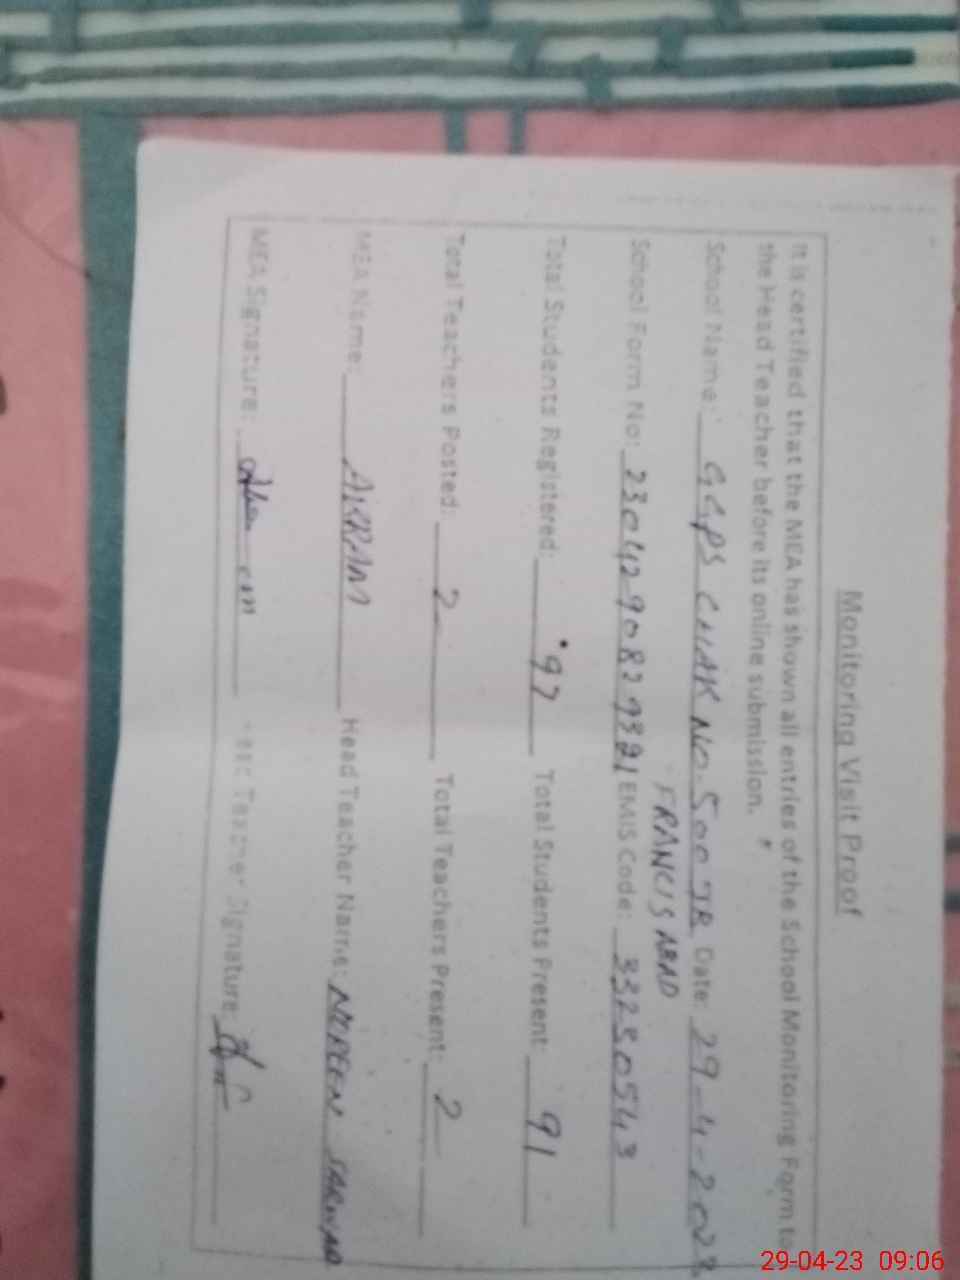 Monitoring Visit Proof
It is certified that the MEA has shown all entries of the School Monitoring Form to
the Head Teacher before its online submission.
School Name: GGPS CHAK NO. 500 JB Date: 29-4-2023
FRANCISABAD
School Form No: EMIS Code: 33230543
Total Students Registered: 97 Total Students Present: 91
Total Teachers Posted: 2 Total Teachers Present: 2
MEA Name: AKRAM Head Teacher Name: NOREEN SARWAR
MEA Signature: Head Teacher Signature:
29-04-23 09:06